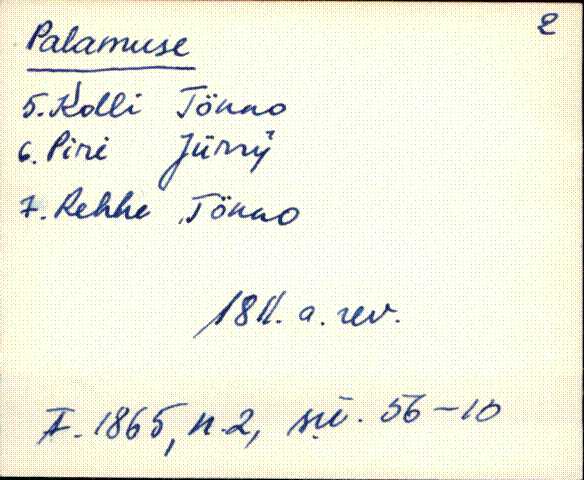 2
Palamuse
5. Kolli Tönno
6. Piri Jürrÿ
7. Rehhe Tönno
1811. a. rev.
F. 1865, n. 2, sü. 56-10